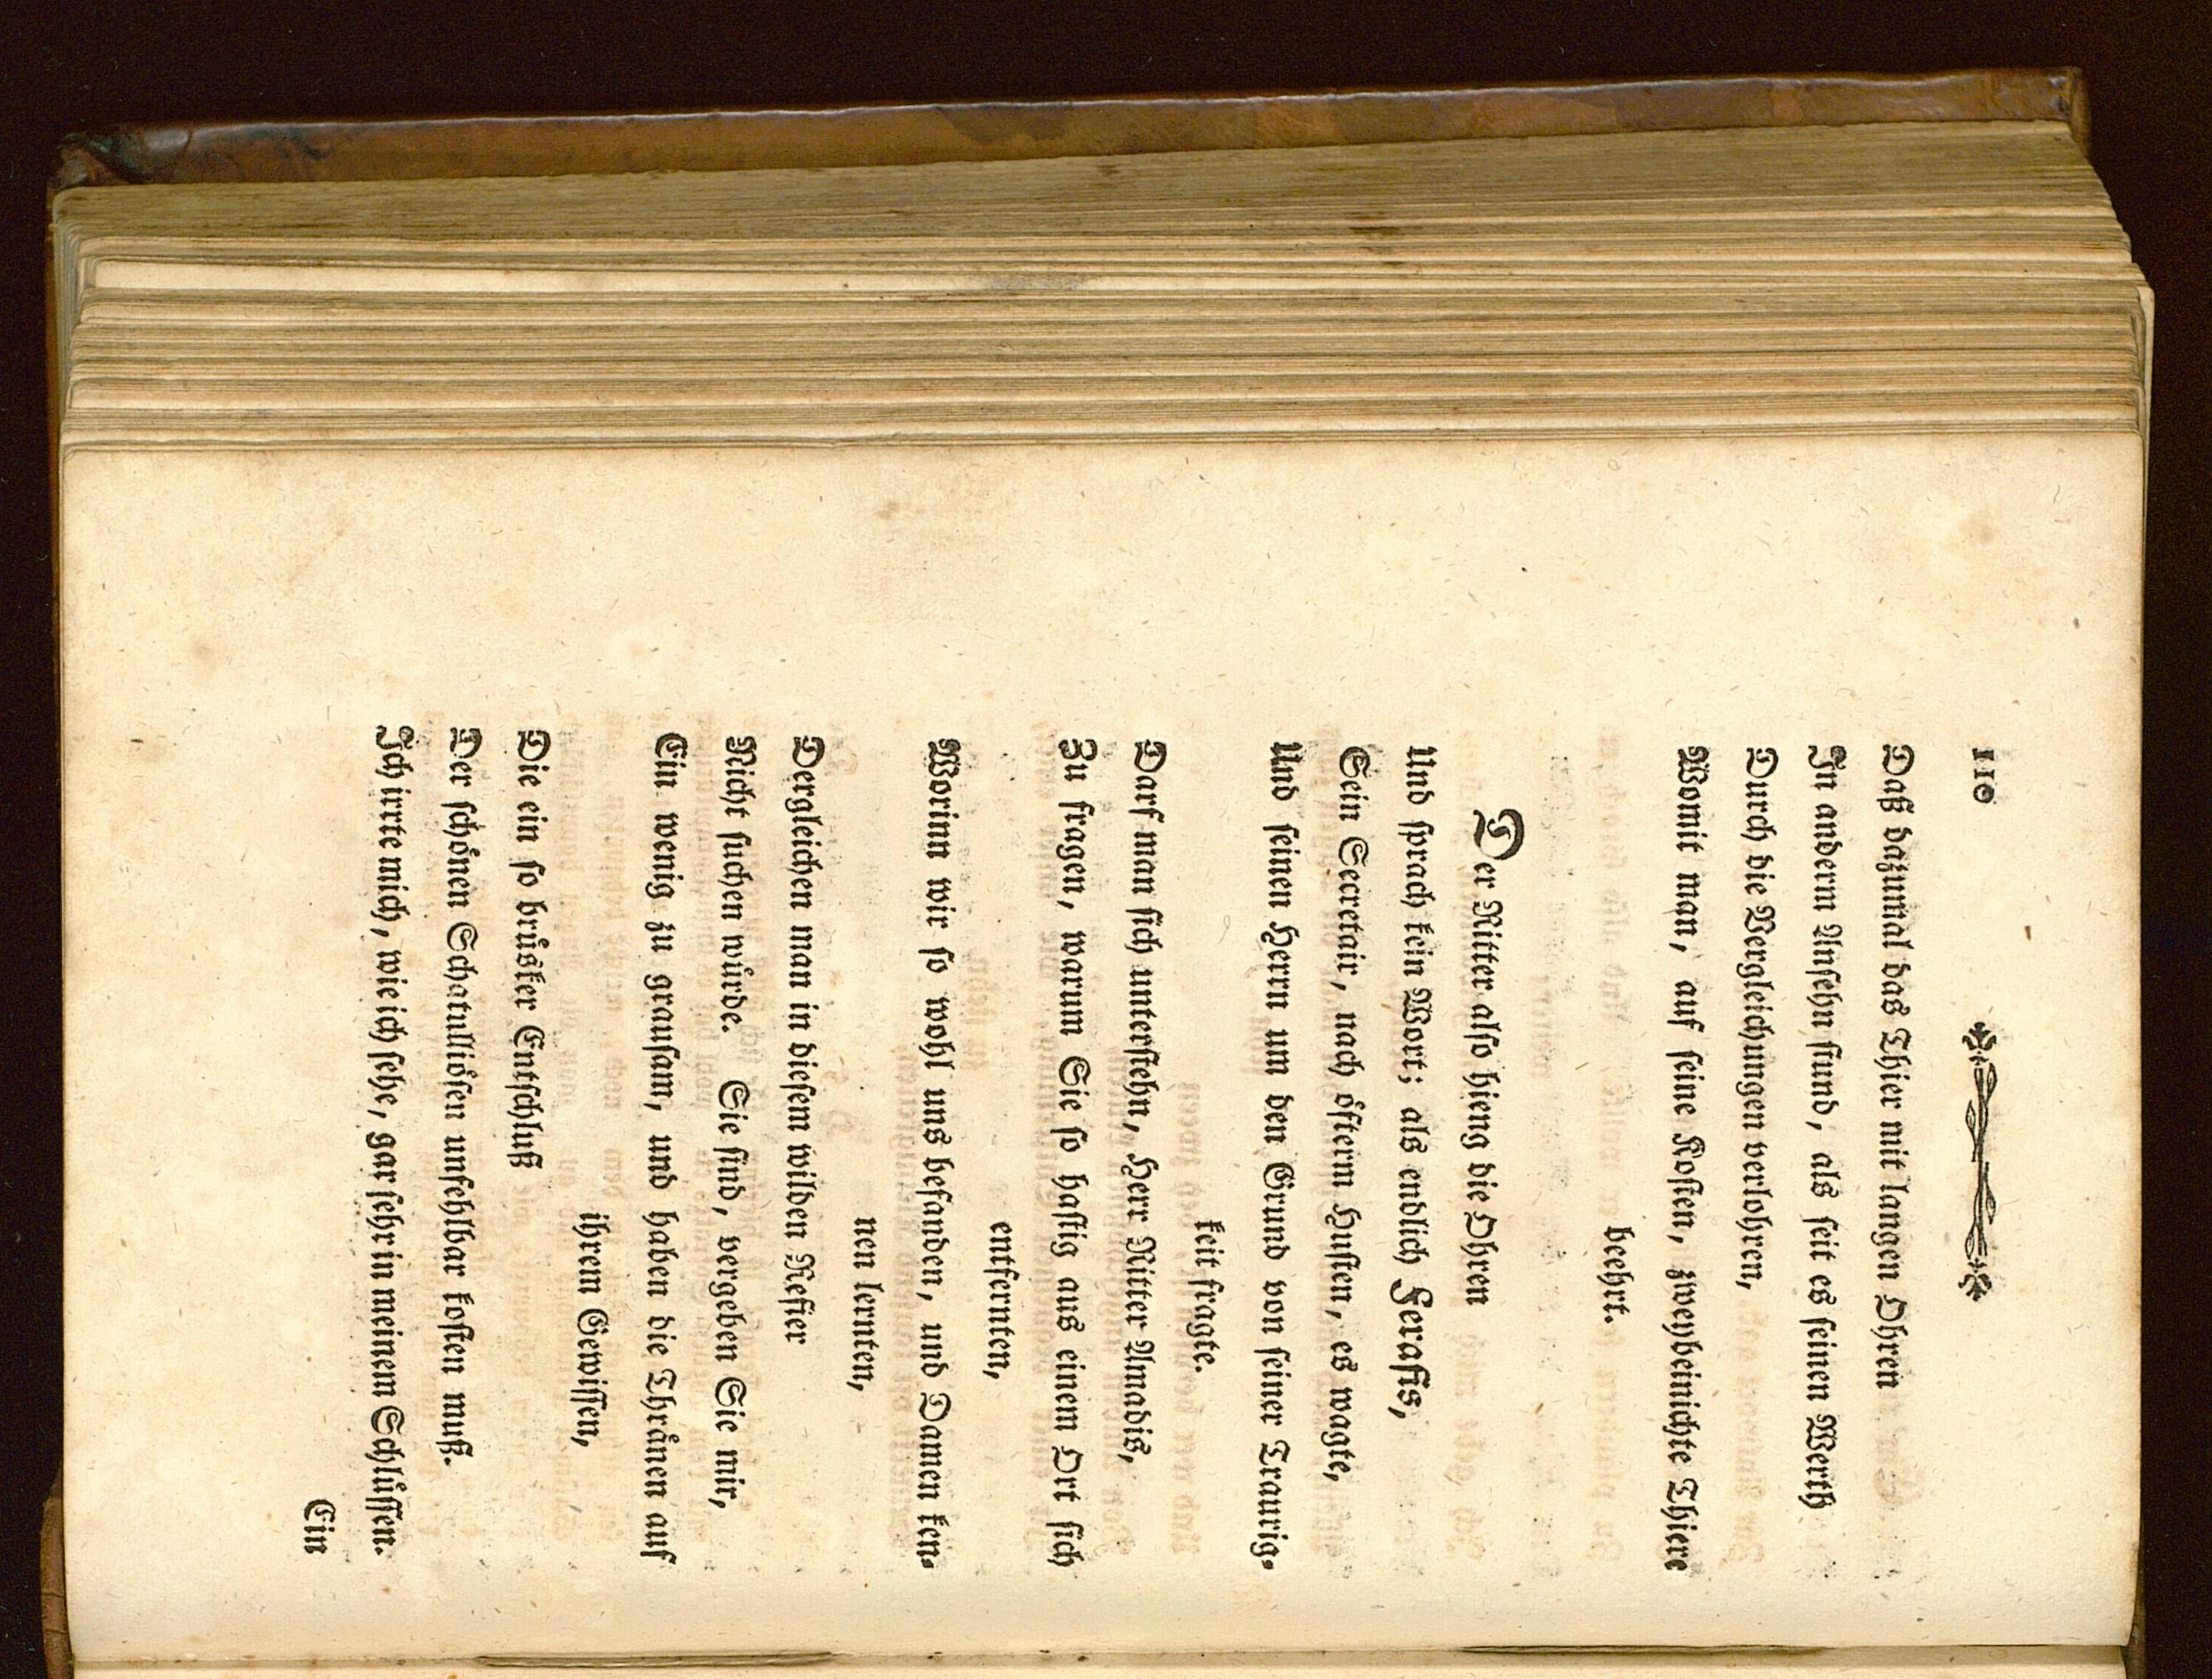 110
Daß dazumal das Thier mit langen Ohren
In anderm Ansehn stund, als seit es seinen Werth
Durch die Vergleichungen verlohren,
Womit man, auf seine Kosten, zweybeinichte Thiere
beehrt.
Der Ritter also hieng die Ohren
Und sprach kein Wort; als endlich Ferafis,
Sein Secretair, nach öfterm Husten, es wagte,
Und seinen Herrn um den Grund von seiner Traurig-
keit fragte.
Darf man sich unterstehn, Herr Ritter Amadis,
Zu fragen, warum Sie so hastig aus einem Ort sich
entfernten,
Worinn wir so wohl uns befanden, und Damen ken-
nen lernten,
Dergleichen man in diesem wilden Refier
Nicht suchen würde. Sie sind, vergeben Sie mir,
Ein wenig zu grausam, und haben die Thränen auf
ihrem Gewissen,
Die ein so brüsker Entschluß
Der schönen Schatulliösen unfehlbar kosten muß.
Ich irrte mich, wie ich sehe, gar sehr in meinem Schlüssen.
Ein